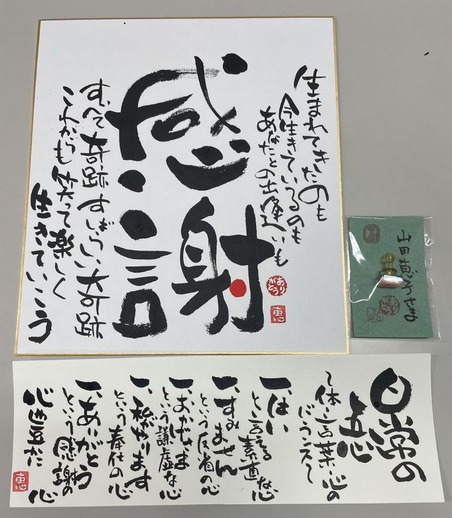 生まれてきたのも
今生きているのも
あなたとの出逢いも
感謝
すべて奇跡すばらしい奇跡
これからも笑って楽しく
生きていこう
ありがとう
恵
山田恵子さま
日常の
五心
一、はい
と言える素直な心
一、すみません
という反省の心
一、おかげさま
という謙虚な心
一、私がやります
という奉仕の心
一、ありがとう
という感謝の心
心豊かに
恵